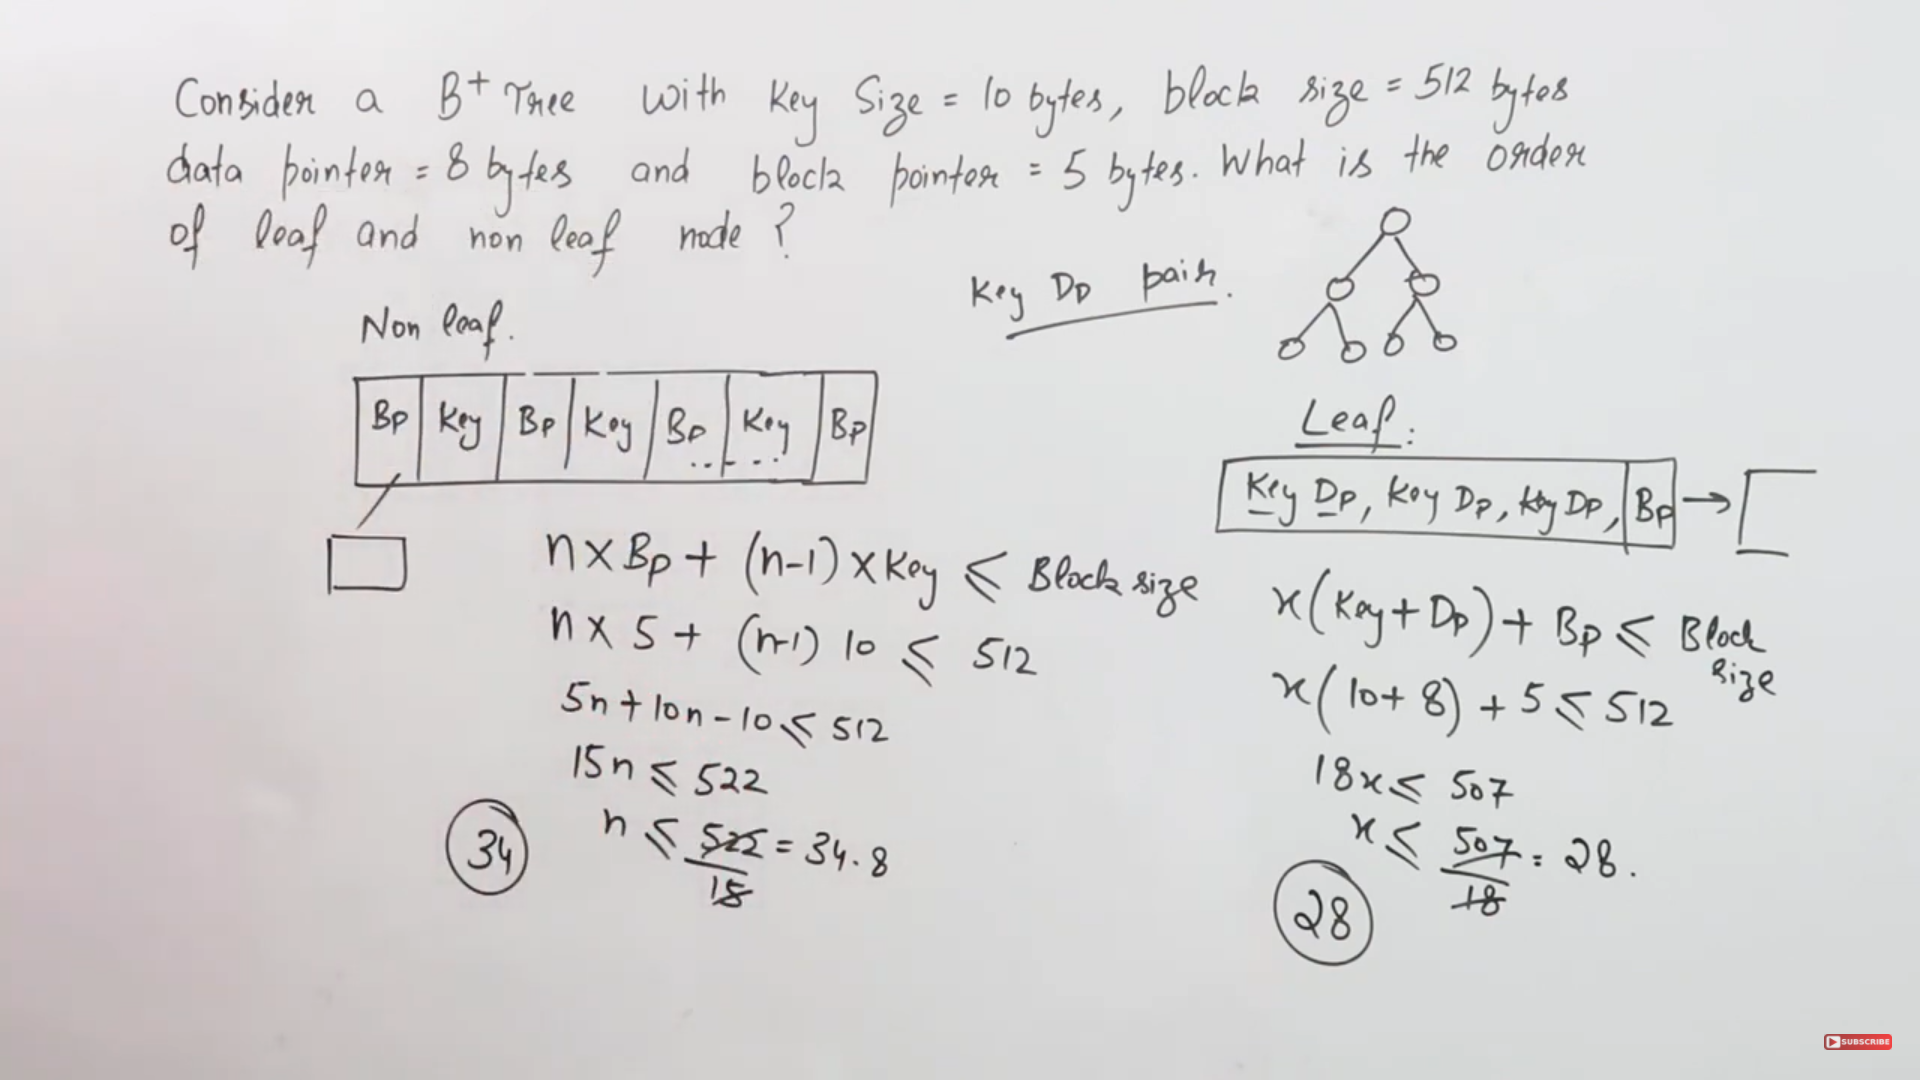 Consider a B+ Tree with Key Size = 10 bytes, block size = 512 bytes
data pointer = 8 bytes and block pointer = 5 bytes. What is the order
of leaf and non leaf node ?
Key Dp pair.
Non leaf.
Bp Key Bp Key Bp Key Bp
n x Bp + (n-1) x Key ≤ Block size
n x 5 + (n-1) 10 ≤ 512
5n + 10n - 10 ≤ 512
15n ≤ 522
n ≤ 522/15 = 34.8
34
Leaf:
Key Dp, Key Dp, Key Dp, Bp
x(Key + Dp) + Bp ≤ Block
size
x(10 + 8) + 5 ≤ 512
18x ≤ 507
x ≤ 507/18 = 28.
28
SUBSCRIBE